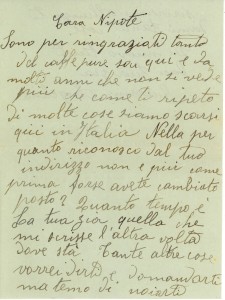 Cara Nipote
Sono per ringraziati tanto
del caffe pure soi qui e da
molti anni che non si vede
piu che come ti ripeto
di molte cose siamo scarsi
qui in Italia Nella per
quanto riconosco dal tuo
indirizzo non e piu come
prima forse avete cambiato
posto? Quanto tempo e
La tua zia quella che
mi scrisse l'altra volta
dove stà Tante altre cose
vorrei dirti e domandarti
ma temo di noiarti